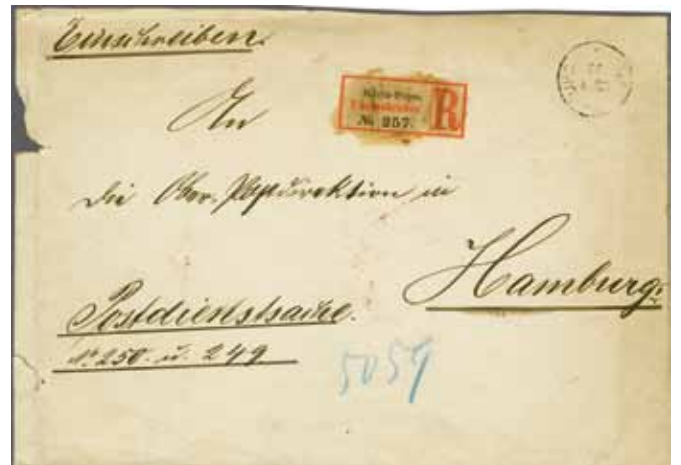 Einschreiben.
An
R
Einschreiben.
№ 257.
die Ober-Postdirektion in
Hamburg.
Postdienstsache.
№ 250. u. 249
5059